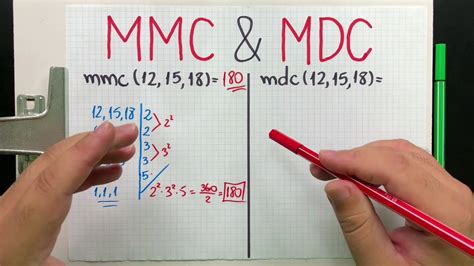 MMC & MDC
mmc(12,15,18)=180
mdc(12,15,18)=
12,15,18 2
2 2²
3
3 3²
5
1,1,1 2²·3²·5=360/2=180